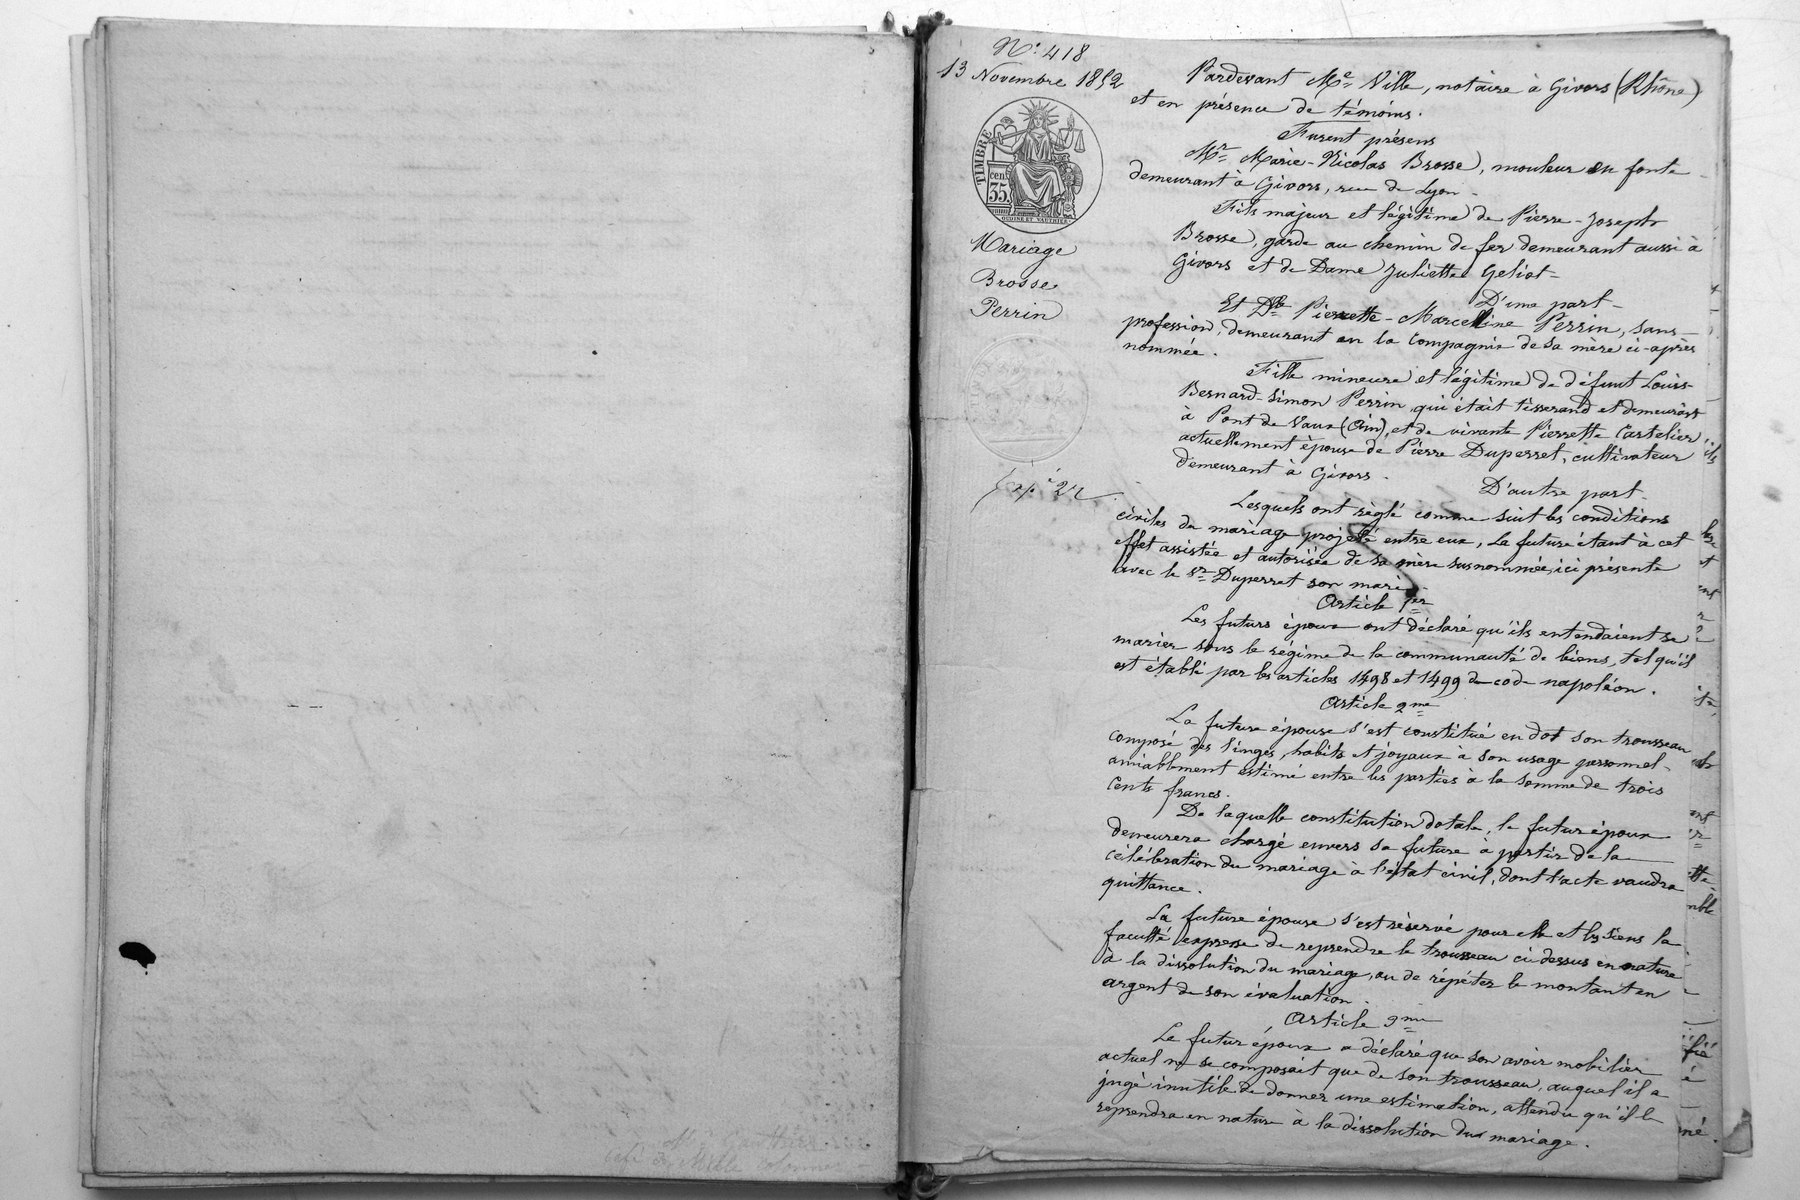 N° 418
13 Novembre 1852
TIMBRE
cent.
35.
OUDINÉ ET VAUTHIER.
Mariage
Brosse
Perrin
Pardevant Me Ville, notaire à Givors (Rhône)
et en présence de témoins.
Furent présens
Mr Marie-Nicolas Brosse, mouleur en fonte
demeurant à Givors, rue de Lyon -
Fils majeur et légitime de Pierre-Joseph
Brosse, garde au chemin de fer demeurant aussi à
Givors et de Dame Juliette Geliot -
D'une part -
Et Dlle Pierrette-Marcelline Perrin, sans
profession, demeurant en la compagnie de sa mère ci-après
nommée.
Fille mineure et légitime de défunt Louis-
Bernard-Simon Perrin qui était tisserand et demeurant
à Pont de Vaux (Ain), et de vivante Pierrette Cartelier
actuellement épouse de Pierre Duperret, cultivateur
demeurant à Givors.
D'autre part -
Lesquels ont réglé comme suit les conditions
civiles du mariage projeté entre eux, la future étant à cet
effet assistée et autorisée de sa mère susnommée, ici présente
avec le Sr Duperret son mari.
Article 1er
Les futurs époux ont déclaré qu'ils entendaient se
marier sous le régime de la communauté de biens, tel qu'il
est établi par les articles 1498 et 1499 du code napoléon.
Article 2me
La future épouse s'est constitué en dot son trousseau
composé des linges, habits et joyaux à son usage personnel
amiablement estimé entre les parties à la somme de trois
cents francs.
De laquelle constitution dotale, le futur époux
demeurera chargé envers sa future à partir de la
célébration du mariage à l'état civil, dont l'acte vaudra
quittance.
La future épouse s'est réservé pour elle et les siens la
faculté expresse de reprendre le trousseau ci-dessus en nature
à la dissolution du mariage, ou de répéter le montant en
argent de son évaluation.
Article 3me
Le futur époux a déclaré que son avoir mobilier
actuel ne se composait que de son trousseau, auquel il a
jugé inutile de donner une estimation, attendu qu'il le
reprendra en nature à la dissolution du mariage.